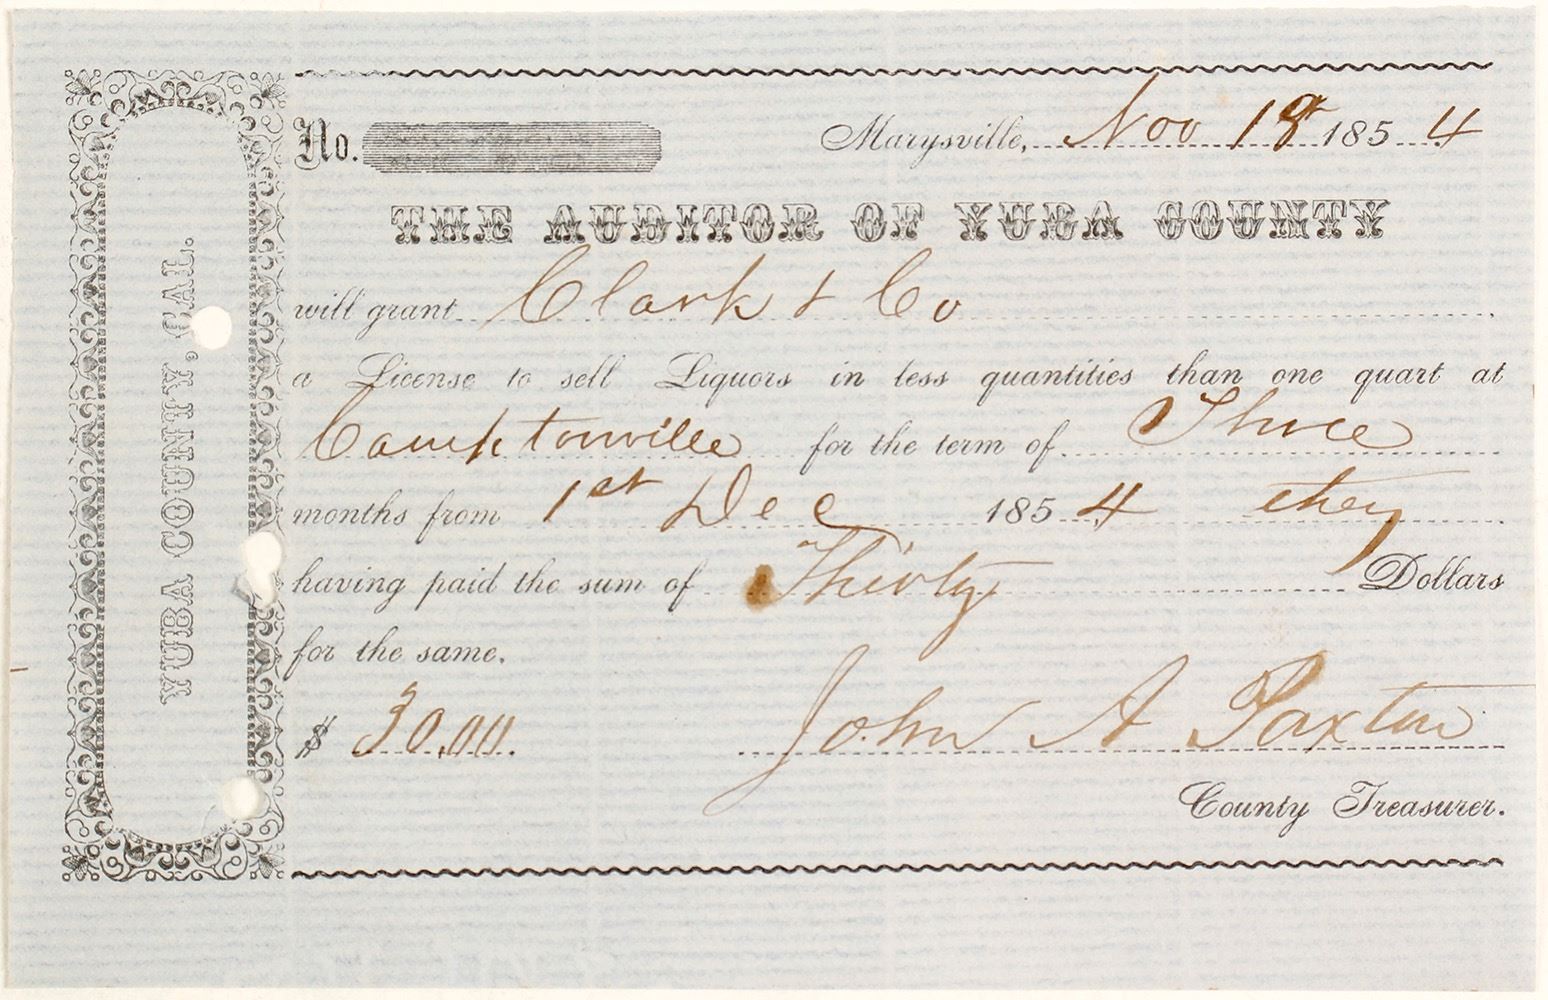 YUBA COUNTY, CAL.
No.
Marysville, Nov 18 1854
THE AUDITOR OF YUBA COUNTY
will grant Clark & Co
a License to sell Liquors in less quantities than one quart at
Camptonville for the term of Three
months from 1st Dec 1854 they
having paid the sum of Thirty Dollars
for the same.
$ 30.00. John A Paxton
County Treasurer.